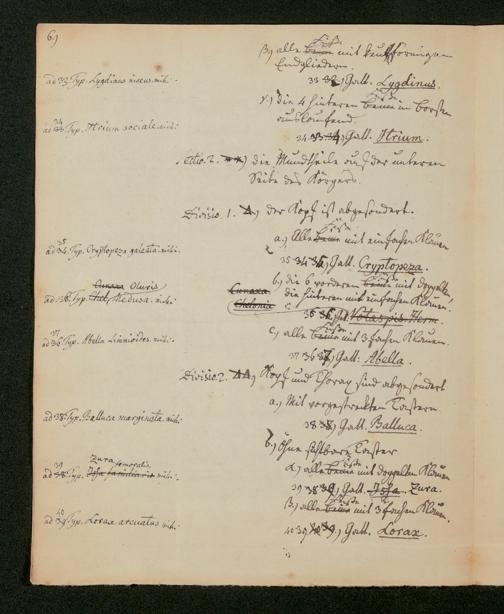 6.)
β.) alle Füße mit keulförmigen
Endgliedern.
ad 33. Typ. Lygdinus niveus. mihi.
33) Gatt. Lygdinus.
γ.) die 4 hinteren Füße in Borsten
auslaufend
ad 34 Typ. Atrium sociale. mihi.
34) Gatt. Atrium.
Sectio. 2. die Mundtheile auf der unteren
Seite des Körpers.
Divisio. 1. A) der Kopf ist abgesondert.
a.) Alle Füße mit einfachen Klauen
ad 35 Typ. Cryptopeza galeata. mihi.
35 Gatt. Cryptopeza.
b) die 6 vorderen mit doppelten,
die hinteren mit einfachen Klauen.
Cunaxa
ad 36. Typ. Medusa. mihi
Chelonia
36 Gatt.
c) alle Füße mit 3 fachen Klauen.
ad 37 Typ. Abella Linnioides. mihi.
37 Gatt. Abella.
Divisio 2. Kopf und Thorax sind abgesondert
a.) Mit vorgestreckten Tastern
ad 38. Typ. Balluca marginata. mihi.
38 Gatt. Balluca.
b.) Ohne sichtbare Taster
Zura femoralis
α.) alle Füße mit doppelten Klauen
ad 39 Typ. mihi.
39 Gatt. Zura.
β.) alle Füße mit 3 fachen Klauen.
ad 40 Typ. Lorax arcuatus. mihi.
40 Gatt. Lorax.